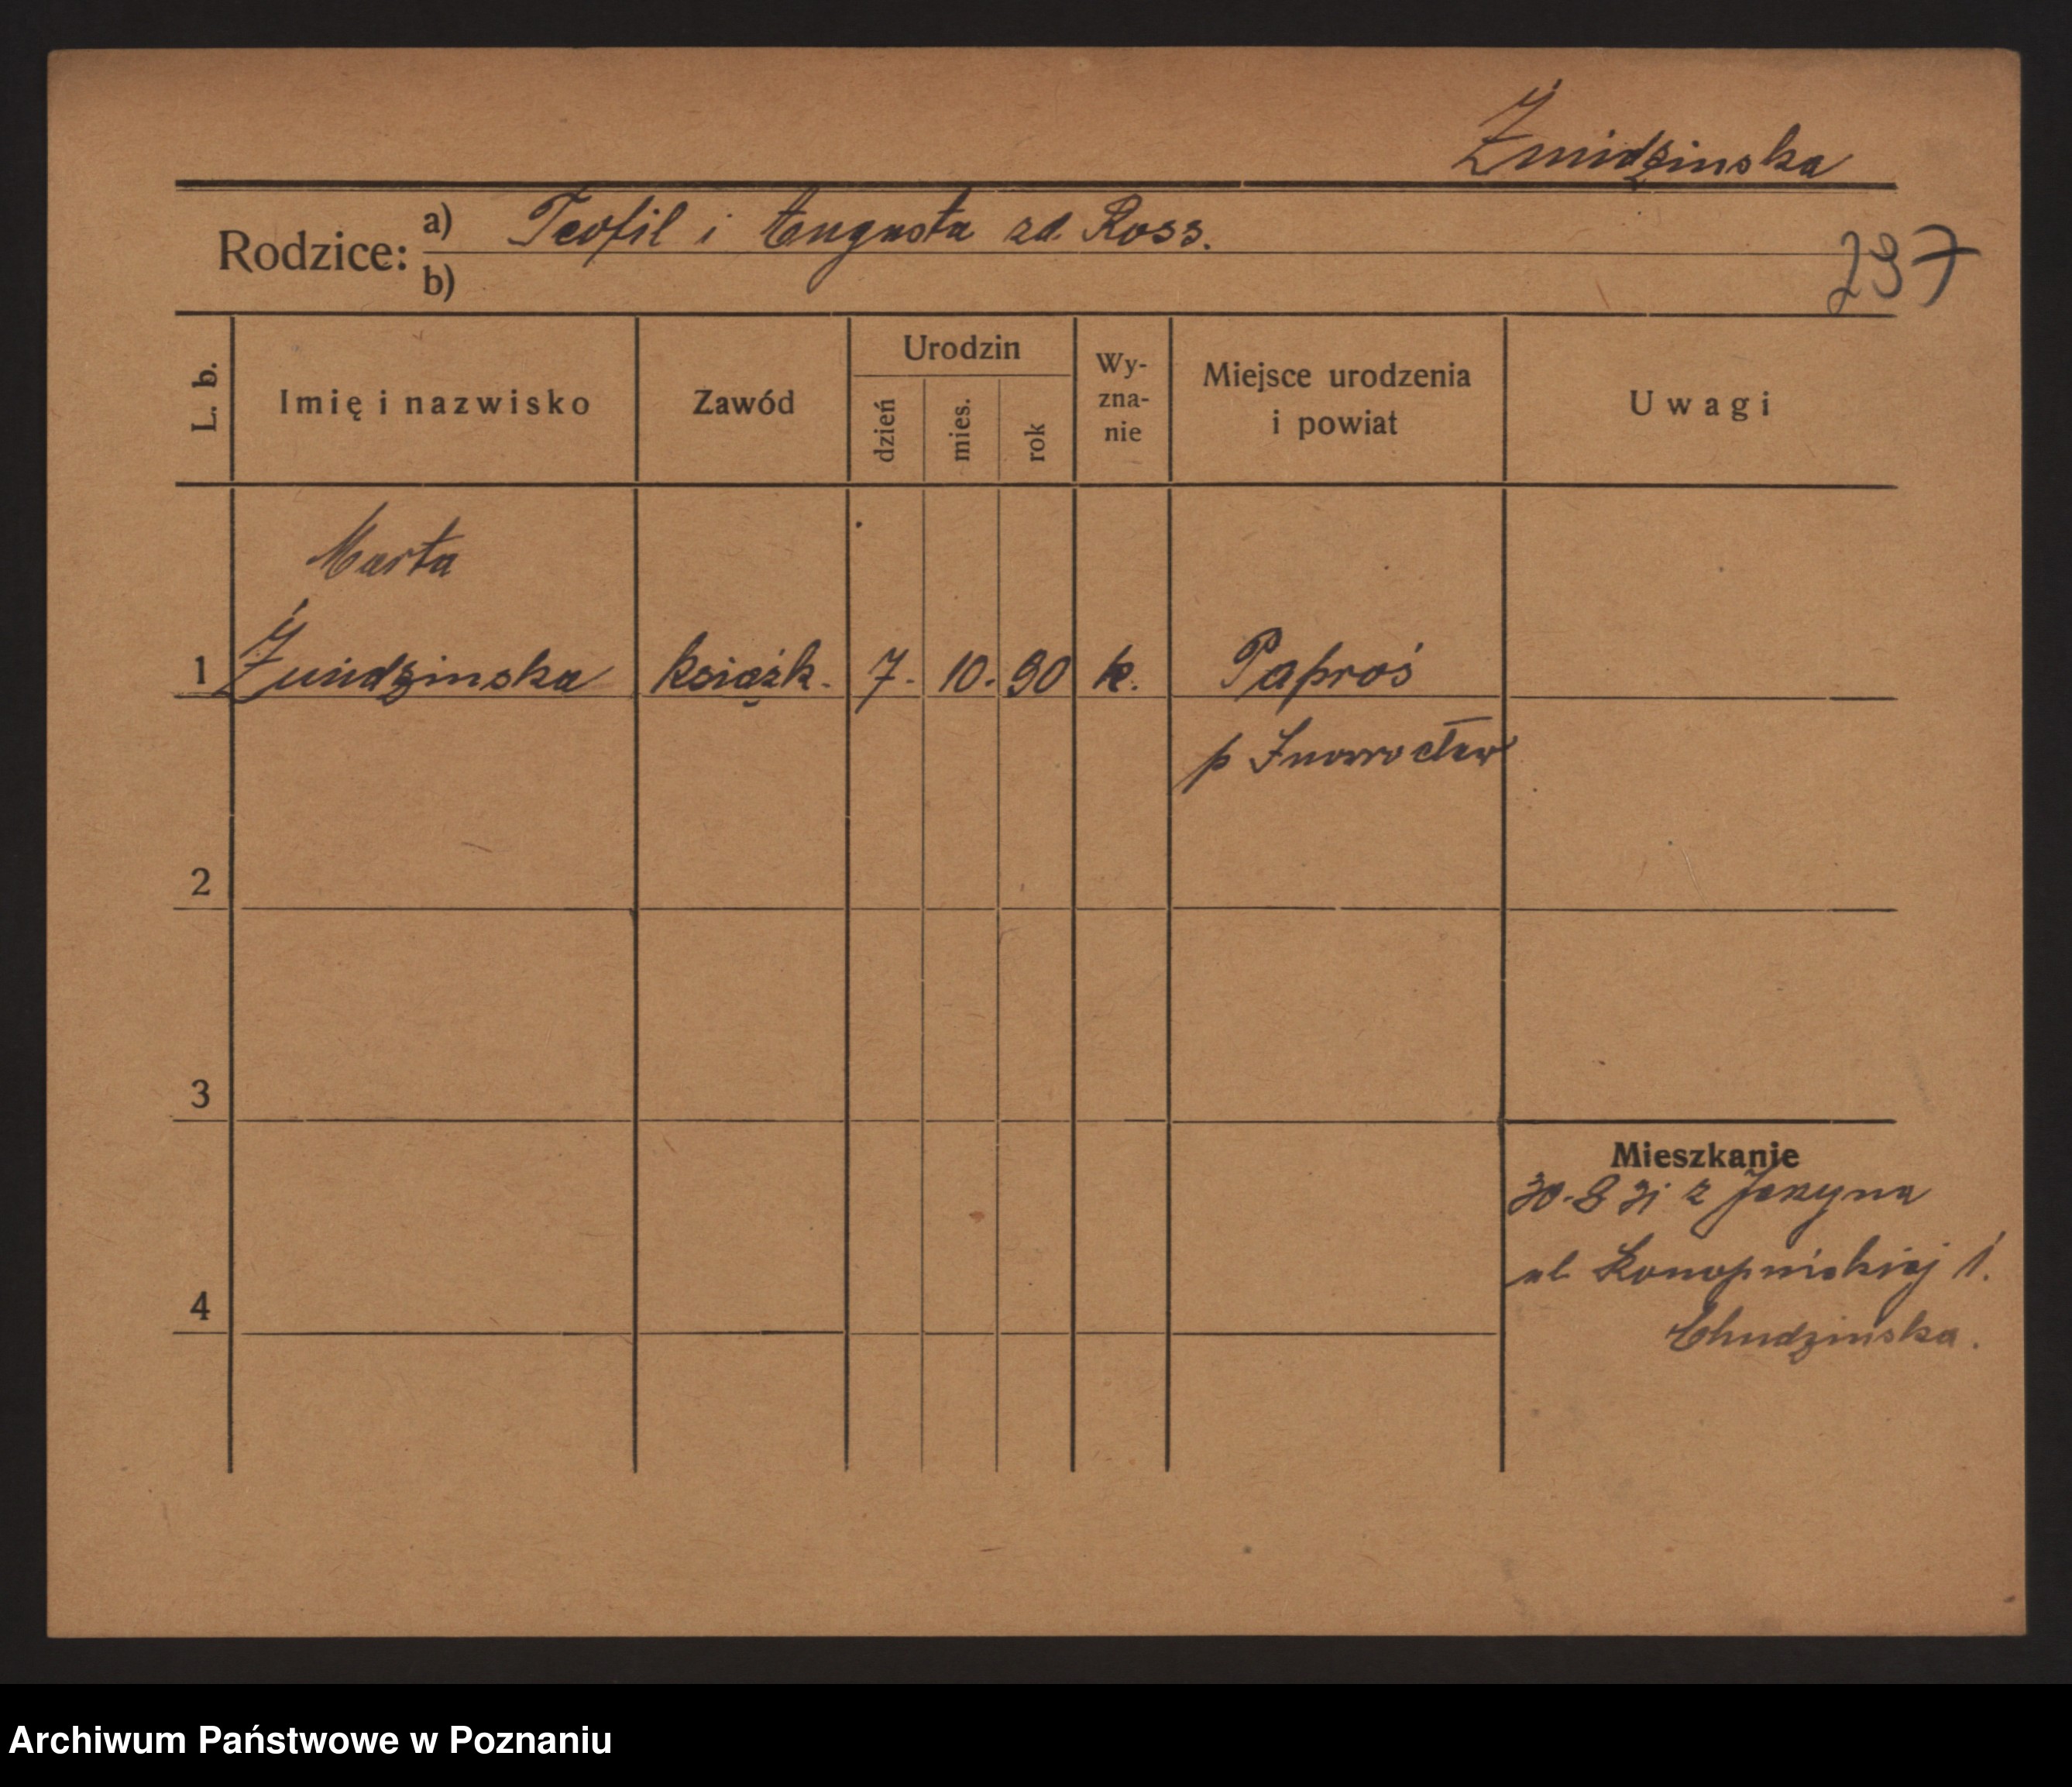 Żmidzinska
Rodzice: a) Teofil i Augusta zd. Ross.
b)
297
L. b.
Imię i nazwisko
Zawód
Urodzin
dzień
mies.
rok
Wy-
zna-
nie
Miejsce urodzenia
i powiat
Uwagi
Marta
1 Żmidzinska książk. 7. 10. 90 k. Paproś
p Inowrocław
2
3
Mieszkanie
30. 8 31 z
ul. Konopnickiej 1.
4
Chudzinska.
Archiwum Państwowe w Poznaniu